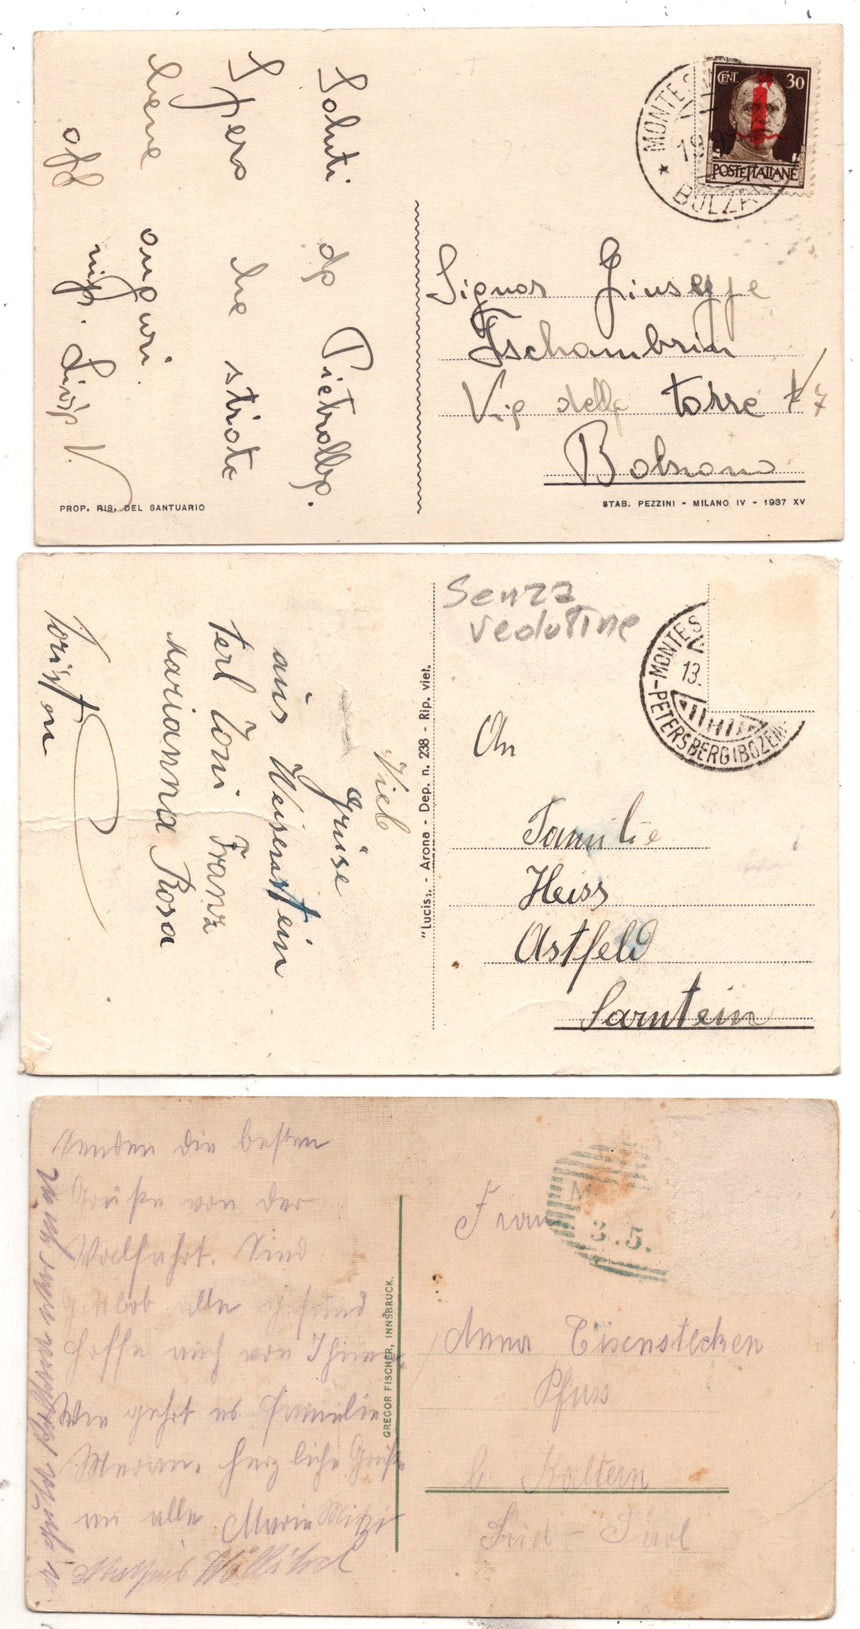 Saluti da Pietralba.
Spero he
bene auguri.
off
CENT. 30
POSTE ITALIANE
MONTES
19
BOLZA
Signor Giuseppe
Tschambrin
Via della torre 7
Bolzano
PROP. RIS. DEL SANTUARIO
STAB. PEZZINI - MILANO IV - 1937 XV
Viele
Grüse
aus Weisenstein
Terl Toni Franz
Marianna Rosa
"Lucis„ - Arona - Dep. n. 238 - Rip. viet.
Senza
vedutine
MONTES
13.
PETERSBERG (BOZEN)
An
Familie
Heiss
Astfeld
Sarntein
Senden die besten
Grüße von der
Wallfahrt. Sind
alle gesund
hoffe auch von Ihnen
Wie geht es Familie
Meran. herzliche Grüße
an alle Marie Mitzi
GREGOR FISCHER, INNSBRUCK.
M
3.5.
Frau
Anna Eisenstecken
Pfuss
b. Kaltern
Süd-Tirol